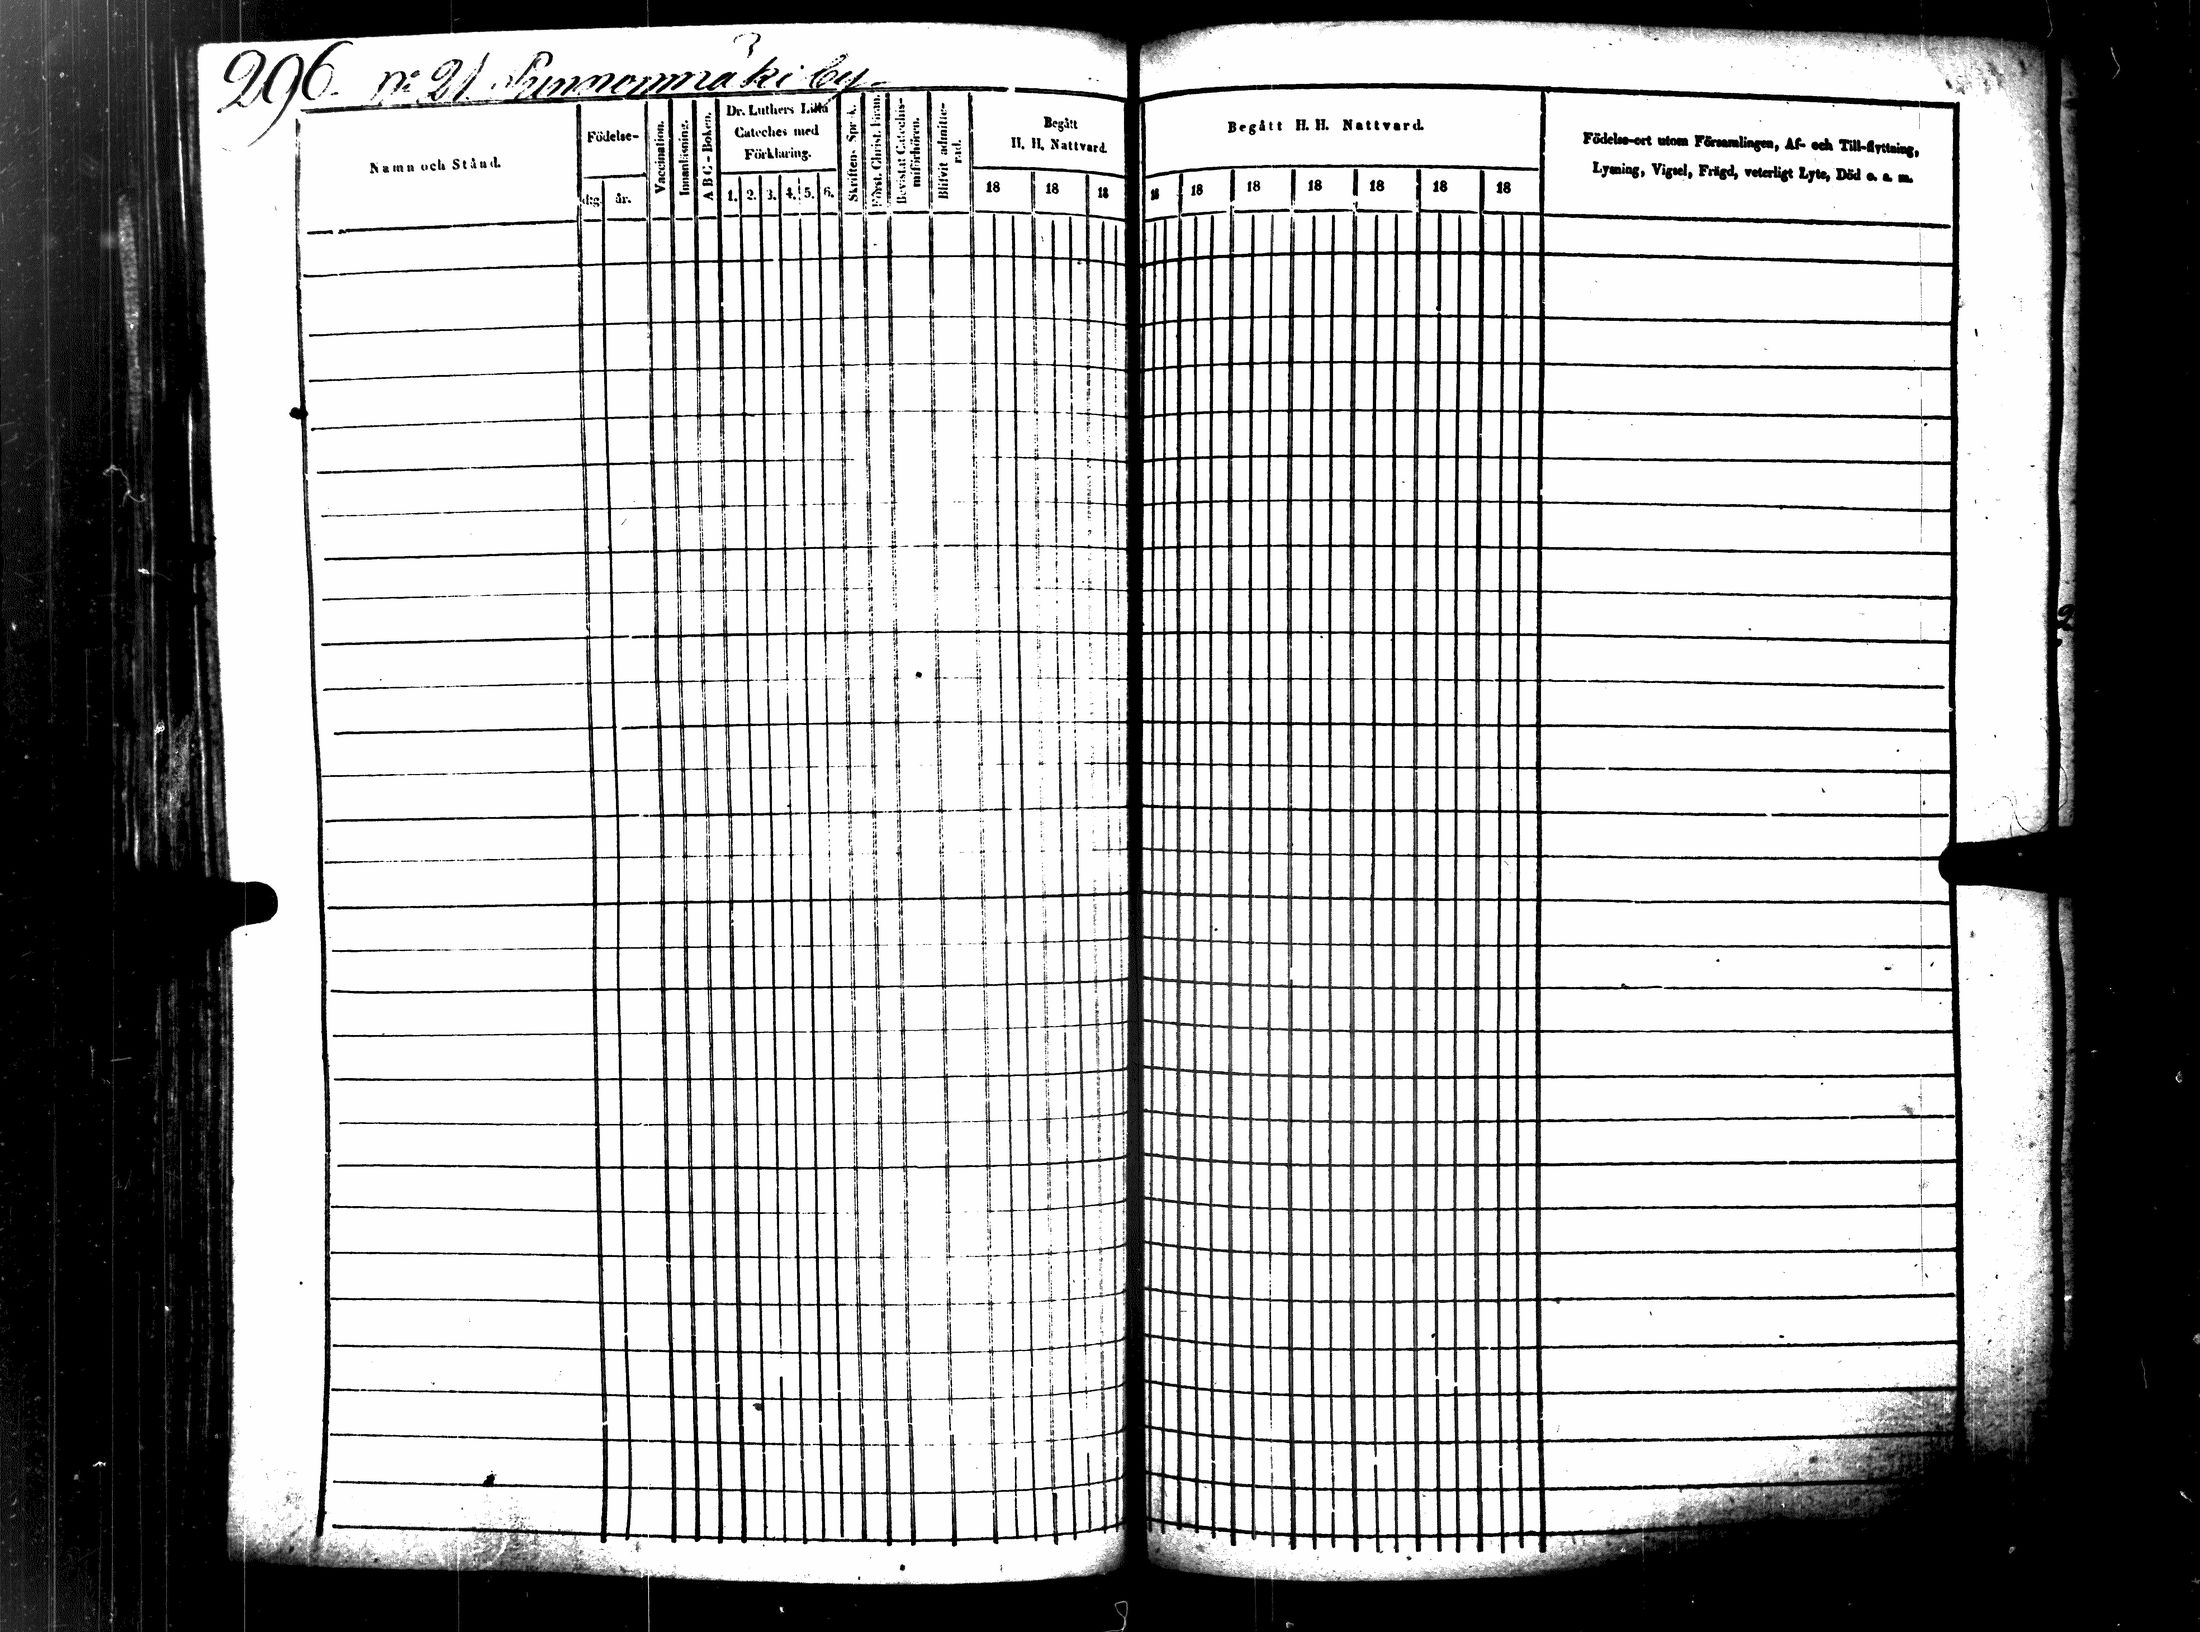 296. No 21. Sunnonmäki by.
Namn och Stånd.
Födelse-
dag
år.
Vaccination.
Innanläsning.
A B C - Boken.
Dr. Luthers Lilla
Cateches med
Förklaring.
1. 2. 3. 4. 5. 6.
Skriftens Språk.
Först. Christ.
Bevistat Catechis-
misförhören.
Blifvit admitte-
rad.
Begått
H. H. Nattvard.
18 18 18
Begått H. H. Nattvard.
18 18 18 18 18 18 18
Födelse-ort utom Församlingen, Af- och Till-flyttning,
Lysning, Vigsel, Frägd, veterligt Lyte, Död o. a. m.